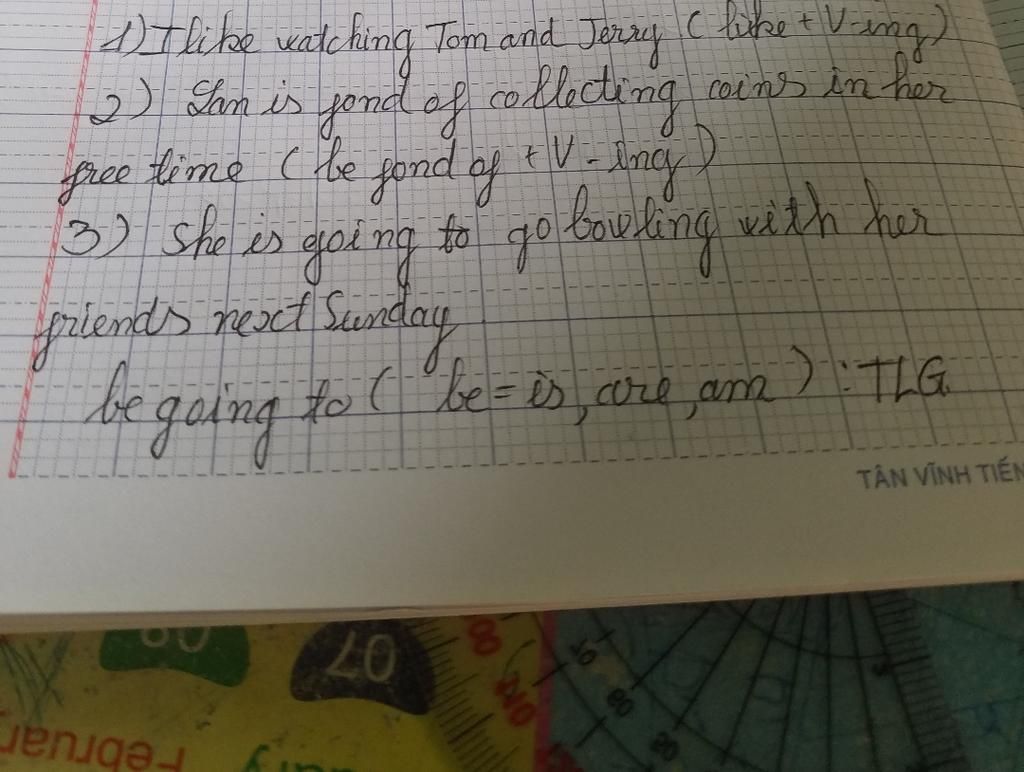 1) I like watching Tom and Jerry ( like + V-ing )
2) Lan is fond of collecting coins in her
free time ( be fond of + V-ing )
3) She is going to go bowling with her
friends next Sunday
be going to ( be = is, are, am ) : TLG
TÂN VĨNH TIẾN
09
07
February